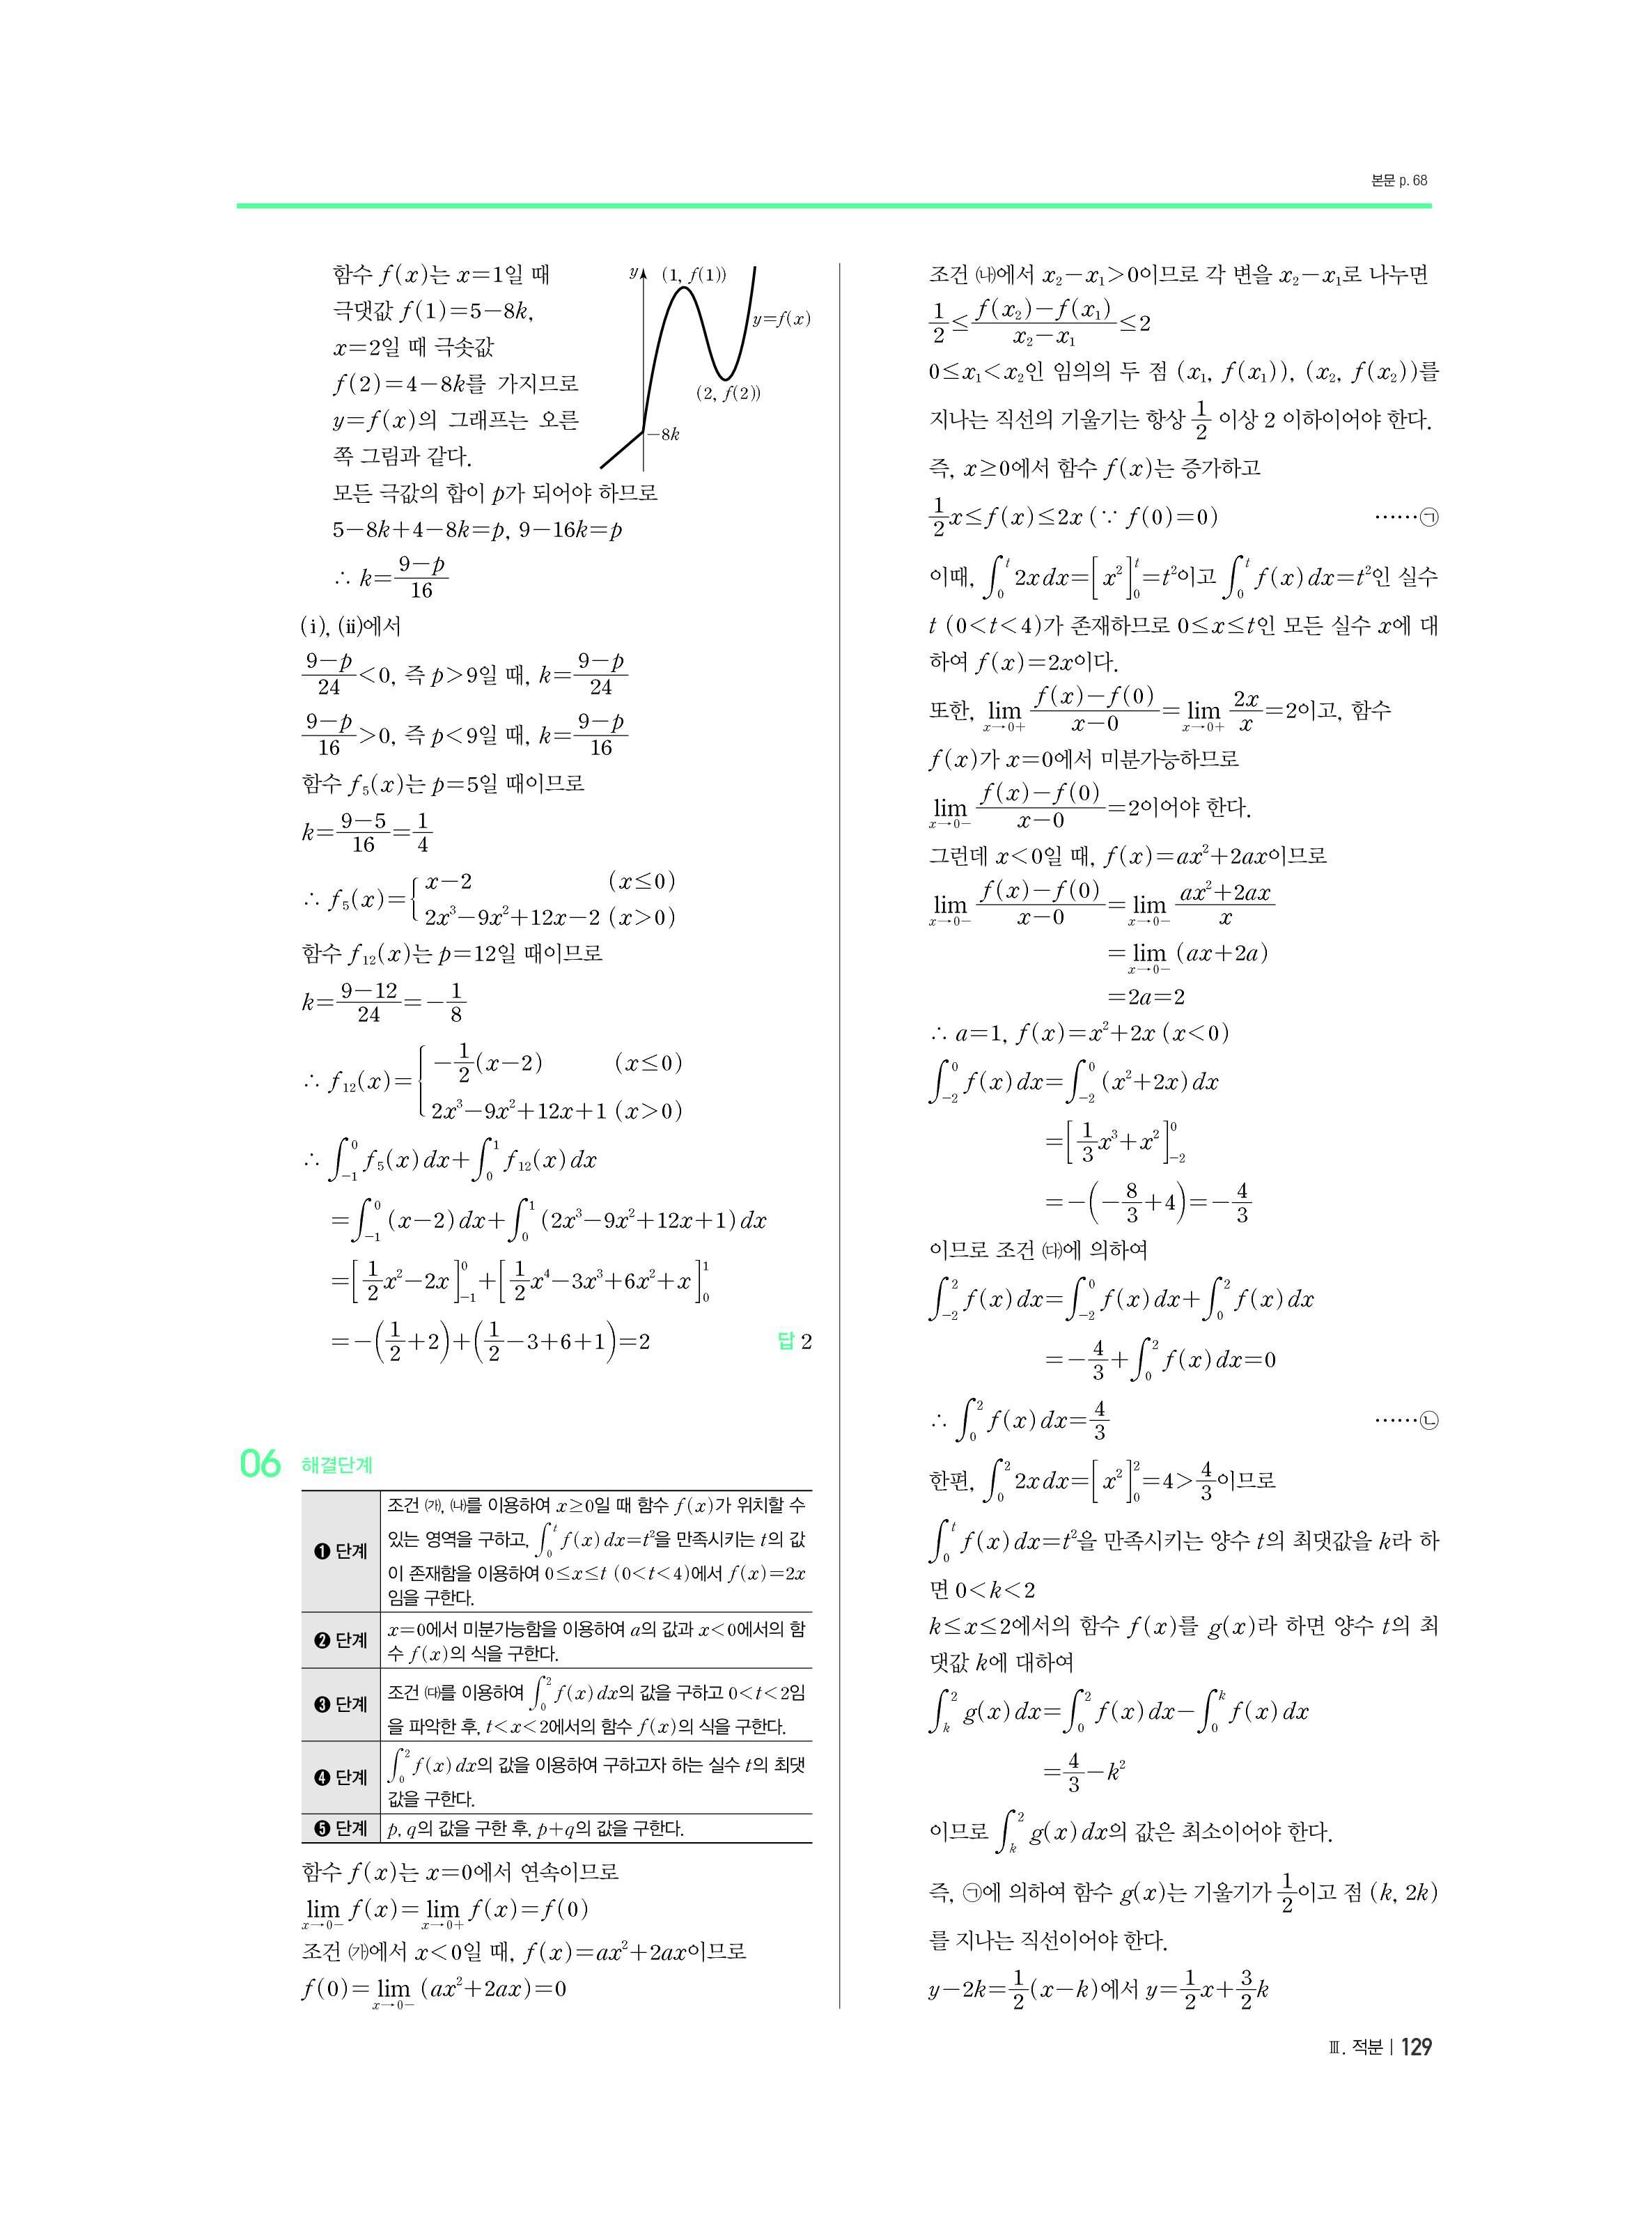 본문 p. 68
함수 f(x)는 x=1일 때
극댓값 f(1)=5-8k,
x=2일 때 극솟값
f(2)=4-8k를 가지므로
y=f(x)의 그래프는 오른
쪽 그림과 같다.
y
(1, f(1))
y=f(x)
(2, f(2))
-8k
모든 극값의 합이 p가 되어야 하므로
5-8k+4-8k=p, 9-16k=p
∴ k=\frac{9-p}{16}
(ⅰ), (ⅱ)에서
\frac{9-p}{24}<0, 즉 p>9일 때, k=\frac{9-p}{24}
\frac{9-p}{16}>0, 즉 p<9일 때, k=\frac{9-p}{16}
함수 f_5(x)는 p=5일 때이므로
k=\frac{9-5}{16}=\frac{1}{4}
∴ f_5(x)=\begin{cases} x-2 & (x≤0) \\ 2x^3-9x^2+12x-2 & (x>0) \end{cases}
함수 f_{12}(x)는 p=12일 때이므로
k=\frac{9-12}{24}=-\frac{1}{8}
∴ f_{12}(x)=\begin{cases} -\frac{1}{2}(x-2) & (x≤0) \\ 2x^3-9x^2+12x+1 & (x>0) \end{cases}
∴ \int_{-1}^{0} f_5(x)dx+\int_{0}^{1} f_{12}(x)dx
=\int_{-1}^{0}(x-2)dx+\int_{0}^{1}(2x^3-9x^2+12x+1)dx
=[\frac{1}{2}x^2-2x]_{-1}^{0}+[\frac{1}{2}x^4-3x^3+6x^2+x]_{0}^{1}
=-(\frac{1}{2}+2)+(\frac{1}{2}-3+6+1)=2 답 2
06 해결단계
❶ 단계 조건 ㈎, ㈏를 이용하여 x≥0일 때 함수 f(x)가 위치할 수
있는 영역을 구하고, \int_{0}^{t} f(x)dx=t^2을 만족시키는 t의 값
이 존재함을 이용하여 0≤x≤t (0<t<4)에서 f(x)=2x
임을 구한다.
❷ 단계 x=0에서 미분가능함을 이용하여 a의 값과 x<0에서의 함
수 f(x)의 식을 구한다.
❸ 단계 조건 ㈐를 이용하여 \int_{0}^{2} f(x)dx의 값을 구하고 0<t<2임
을 파악한 후, t<x<2에서의 함수 f(x)의 식을 구한다.
❹ 단계 \int_{0}^{2} f(x)dx의 값을 이용하여 구하고자 하는 실수 t의 최댓
값을 구한다.
❺ 단계 p, q의 값을 구한 후, p+q의 값을 구한다.
함수 f(x)는 x=0에서 연속이므로
\lim_{x→0-} f(x)=\lim_{x→0+} f(x)=f(0)
조건 ㈎에서 x<0일 때, f(x)=ax^2+2ax이므로
f(0)=\lim_{x→0-}(ax^2+2ax)=0
조건 ㈏에서 x_2-x_1>0이므로 각 변을 x_2-x_1로 나누면
\frac{1}{2}≤\frac{f(x_2)-f(x_1)}{x_2-x_1}≤2
0≤x_1<x_2인 임의의 두 점 (x_1, f(x_1)), (x_2, f(x_2))를
지나는 직선의 기울기는 항상 \frac{1}{2} 이상 2 이하이어야 한다.
즉, x≥0에서 함수 f(x)는 증가하고
\frac{1}{2}x≤f(x)≤2x (∵ f(0)=0) ……㉠
이때, \int_{0}^{t} 2xdx=[x^2]_{0}^{t}=t^2이고 \int_{0}^{t} f(x)dx=t^2인 실수
t (0<t<4)가 존재하므로 0≤x≤t인 모든 실수 x에 대
하여 f(x)=2x이다.
또한, \lim_{x→0+}\frac{f(x)-f(0)}{x-0}=\lim_{x→0+}\frac{2x}{x}=2이고, 함수
f(x)가 x=0에서 미분가능하므로
\lim_{x→0-}\frac{f(x)-f(0)}{x-0}=2이어야 한다.
그런데 x<0일 때, f(x)=ax^2+2ax이므로
\lim_{x→0-}\frac{f(x)-f(0)}{x-0}=\lim_{x→0-}\frac{ax^2+2ax}{x}
=\lim_{x→0-}(ax+2a)
=2a=2
∴ a=1, f(x)=x^2+2x (x<0)
\int_{-2}^{0} f(x)dx=\int_{-2}^{0}(x^2+2x)dx
=[\frac{1}{3}x^3+x^2]_{-2}^{0}
=-(-\frac{8}{3}+4)=-\frac{4}{3}
이므로 조건 ㈐에 의하여
\int_{-2}^{2} f(x)dx=\int_{-2}^{0} f(x)dx+\int_{0}^{2} f(x)dx
=-\frac{4}{3}+\int_{0}^{2} f(x)dx=0
∴ \int_{0}^{2} f(x)dx=\frac{4}{3} ……㉡
한편, \int_{0}^{2} 2xdx=[x^2]_{0}^{2}=4>\frac{4}{3}이므로
\int_{0}^{t} f(x)dx=t^2을 만족시키는 양수 t의 최댓값을 k라 하
면 0<k<2
k≤x≤2에서의 함수 f(x)를 g(x)라 하면 양수 t의 최
댓값 k에 대하여
\int_{k}^{2} g(x)dx=\int_{0}^{2} f(x)dx-\int_{0}^{k} f(x)dx
=\frac{4}{3}-k^2
이므로 \int_{k}^{2} g(x)dx의 값은 최소이어야 한다.
즉, ㉠에 의하여 함수 g(x)는 기울기가 \frac{1}{2}이고 점 (k, 2k)
를 지나는 직선이어야 한다.
y-2k=\frac{1}{2}(x-k)에서 y=\frac{1}{2}x+\frac{3}{2}k
Ⅲ. 적분 | 129